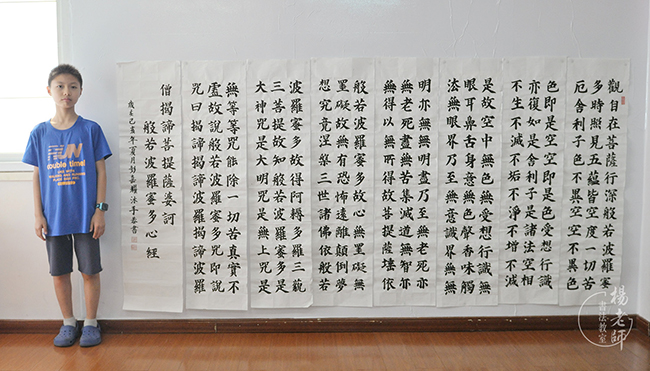 觀自在菩薩行深般若波羅蜜
多時照見五蘊皆空度一切苦
厄舍利子色不異空空不異色
色即是空空即是色受想行識
亦復如是舍利子是諸法空相
不生不滅不垢不淨不增不減
是故空中無色無受想行識無
眼耳鼻舌身意無色聲香味觸
法無眼界乃至無意識界無無
明亦無無明盡乃至無老死亦
無老死盡無苦集滅道無智亦
無得以無所得故菩提薩埵依
般若波羅蜜多故心無罣礙無
罣礙故無有恐怖遠離顛倒夢
想究竟涅槃三世諸佛依般若
波羅蜜多故得阿耨多羅三藐
三菩提故知般若波羅蜜多是
大神咒是大明咒是無上咒是
無等等咒能除一切苦真實不
虛故說般若波羅蜜多咒即說
咒曰揭諦揭諦波羅揭諦波羅
僧揭諦菩提薩婆訶
般若波羅蜜多心經
歲在己亥年夏月彭嘉沐手恭書
ouble time!
楊老師
書法教室